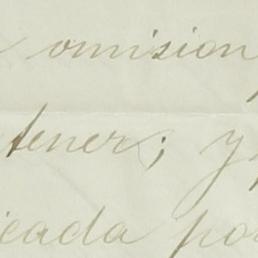 omision
tener; y
icada por